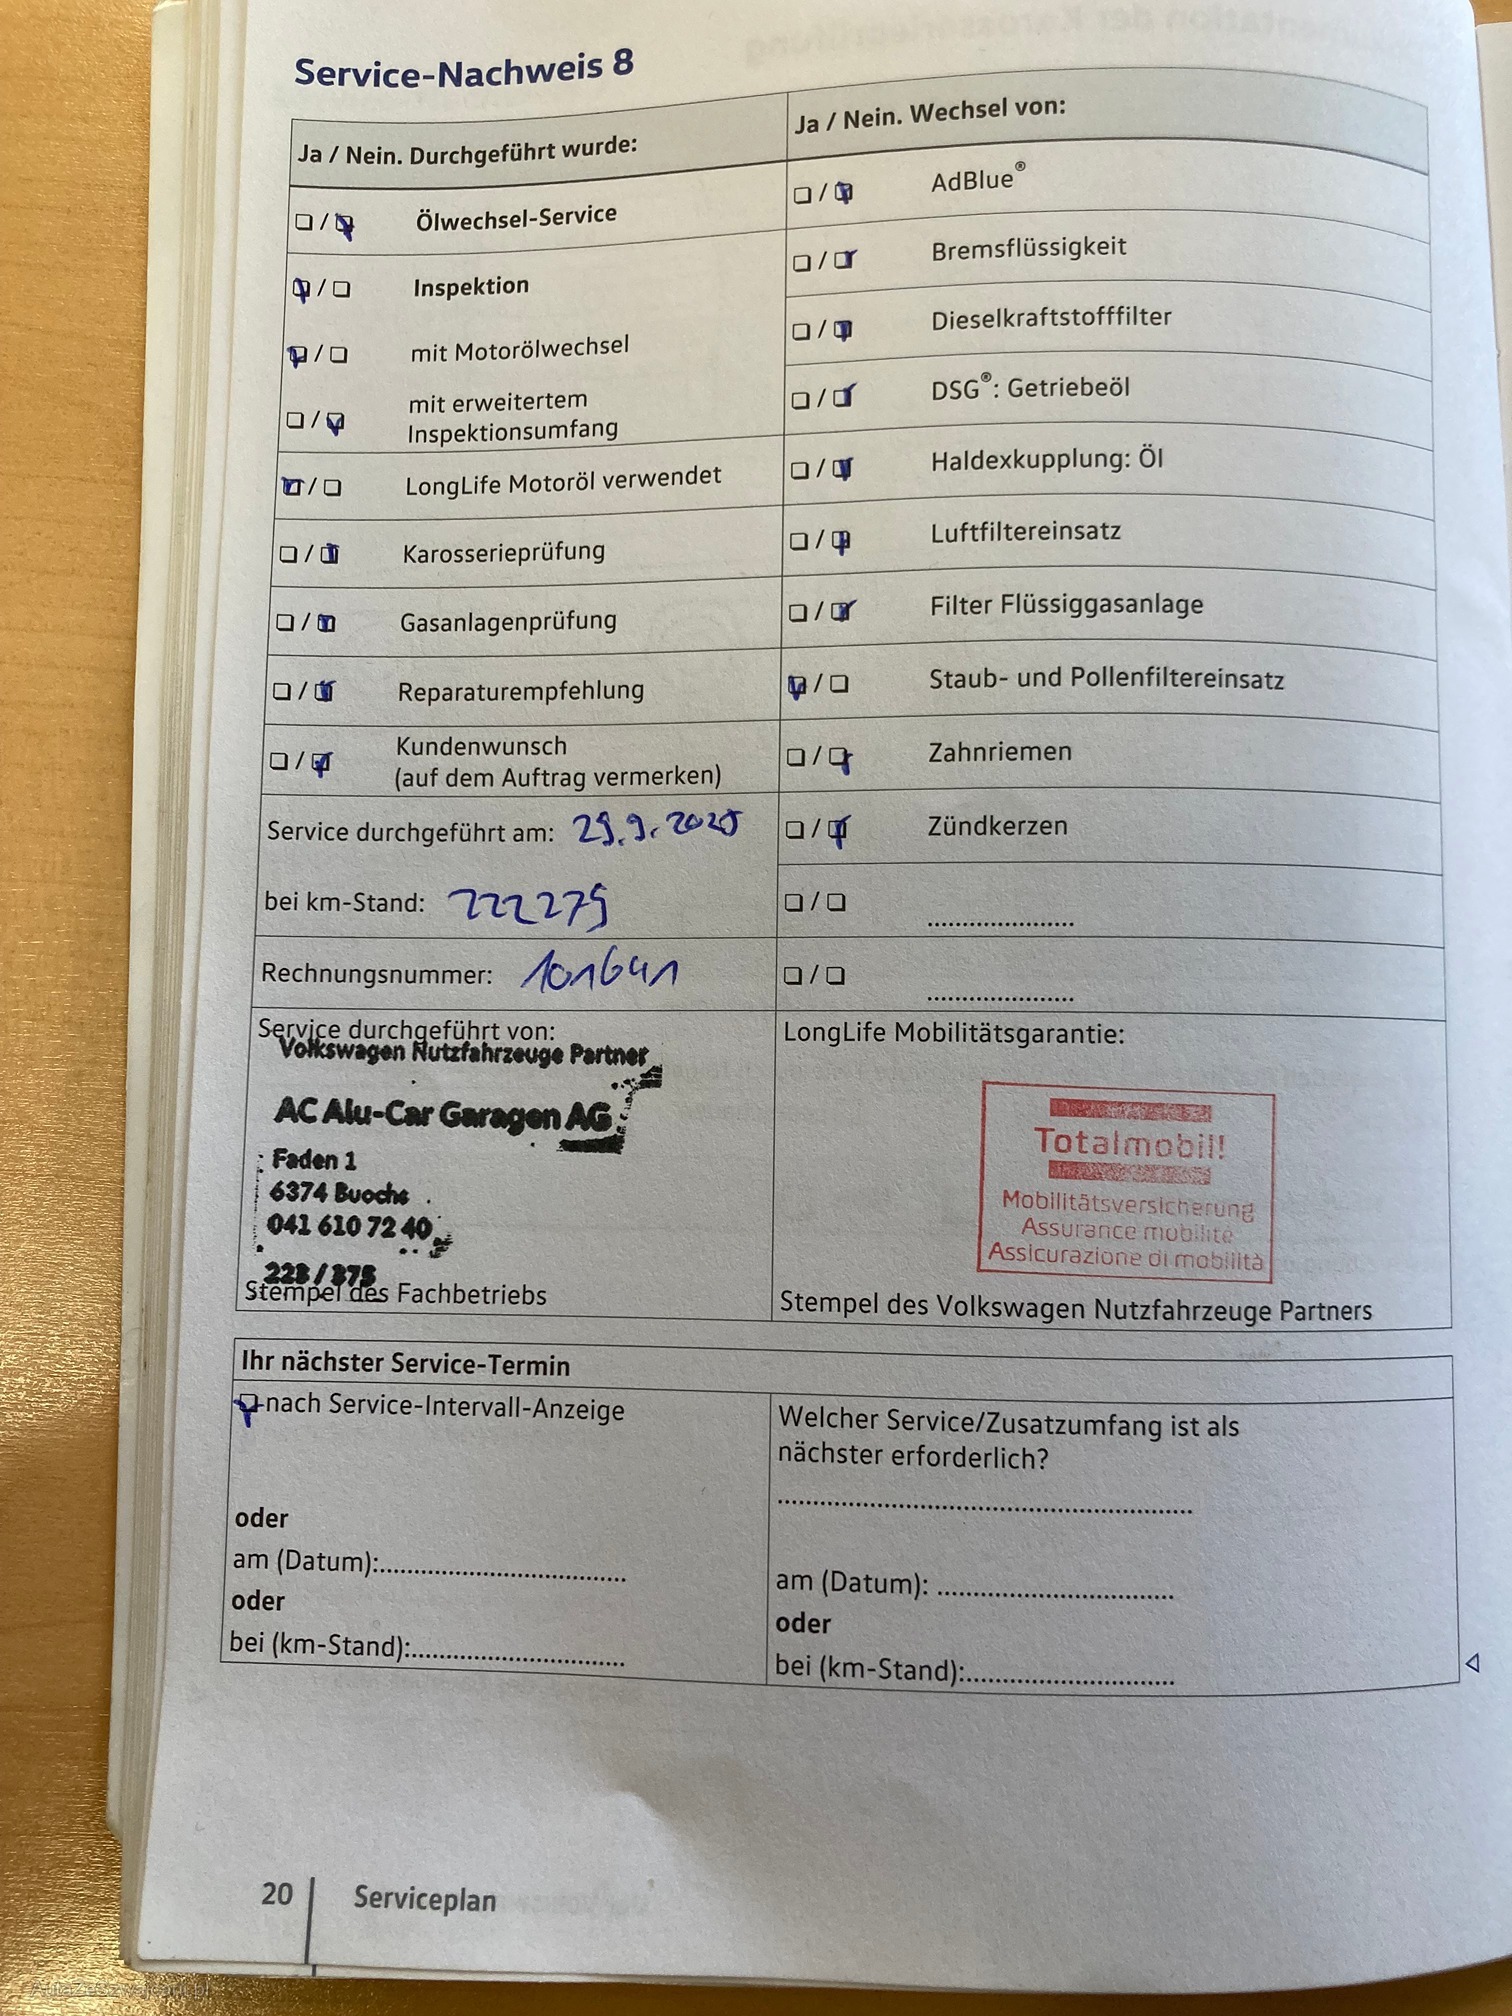 Service-Nachweis 8
Ja / Nein. Durchgeführt wurde:
Ölwechsel-Service
Inspektion
mit Motorölwechsel
mit erweitertem
Inspektionsumfang
LongLife Motoröl verwendet
Karosserieprüfung
Gasanlagenprüfung
Reparaturempfehlung
Kundenwunsch
(auf dem Auftrag vermerken)
Service durchgeführt am:
bei km-Stand: 222275
Rechnungsnummer: 101641
Ja / Nein. Wechsel von:
AdBlue®
Bremsflüssigkeit
Dieselkraftstofffilter
DSG®: Getriebeöl
Haldexkupplung: Öl
Luftfiltereinsatz
Filter Flüssiggasanlage
Staub- und Pollenfiltereinsatz
Zahnriemen
Zündkerzen
Service durchgeführt von:
Volkswagen Nutzfahrzeuge Partner
AC Alu-Car Garagen AG
Faden 1
6374 Buochs
041 610 72 40
223 / 375
Stempel des Fachbetriebs
LongLife Mobilitätsgarantie:
Totalmobil!
Mobilitätsversicherung
Assurance mobilité
Assicurazione di mobilità
Stempel des Volkswagen Nutzfahrzeuge Partners
Ihr nächster Service-Termin
nach Service-Intervall-Anzeige
oder
am (Datum):
oder
bei (km-Stand):
Welcher Service/Zusatzumfang ist als
nächster erforderlich?
am (Datum):
oder
bei (km-Stand):
20 Serviceplan
AutaZeSzwajcarii.pl